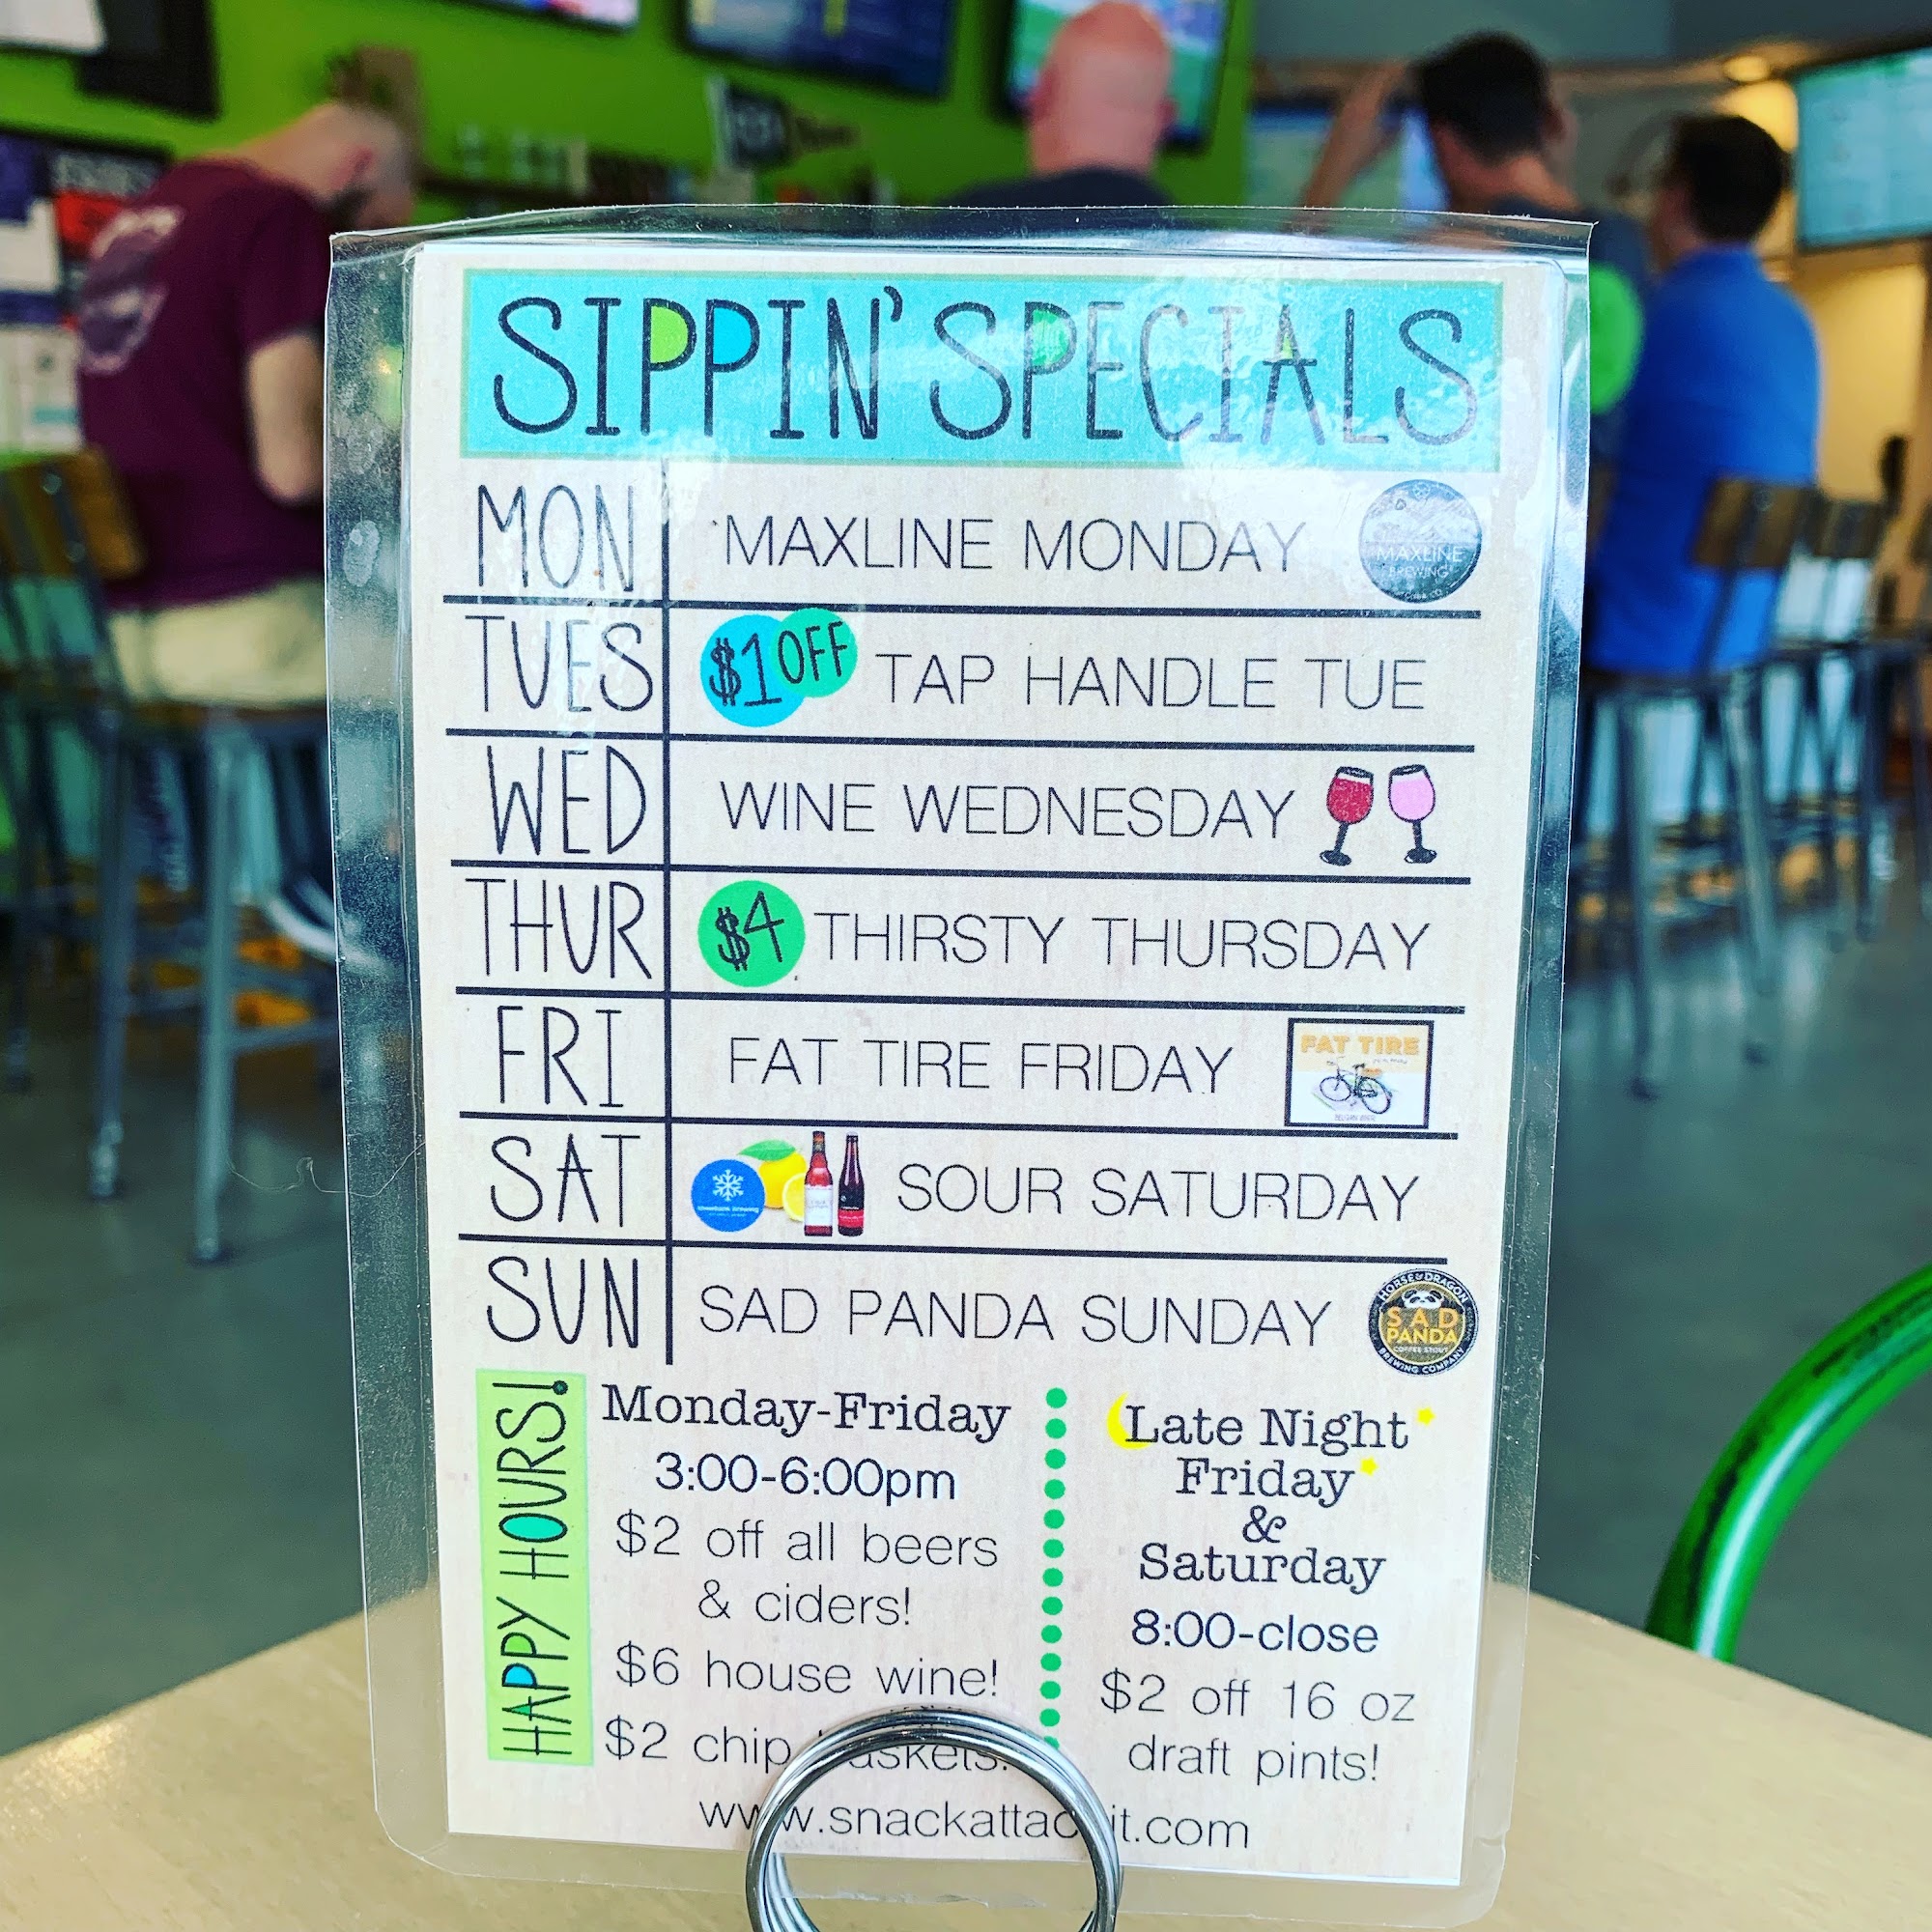 SIPPIN' SPECIALS
MON MAXLINE MONDAY
MAXLINE
BREWING
TUES $1 OFF TAP HANDLE TUE
WED WINE WEDNESDAY
THUR $4 THIRSTY THURSDAY
FRI FAT TIRE FRIDAY
FAT TIRE
SAT SOUR SATURDAY
SUN SAD PANDA SUNDAY
HORSE & DRAGON
SAD
PANDA
COFFEE STOUT
BREWING COMPANY
HAPPY HOURS!
Monday-Friday
3:00-6:00pm
$2 off all beers
& ciders!
$6 house wine!
$2 chip
Late Night
Friday
&
Saturday
8:00-close
$2 off 16 oz
draft pints!